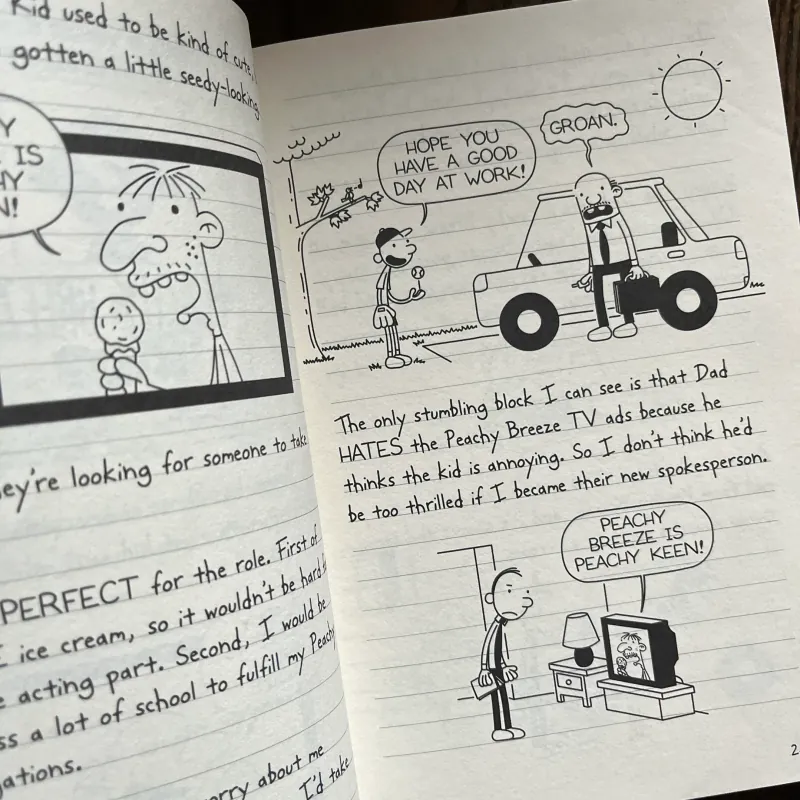 Kid used to be kind of cute,
gotten a little seedy-looking
Y
IS
HY
N!
They're looking for someone to take
PERFECT for the role. First of
I ice cream, so it wouldn't be hard
acting part. Second, I would be
a lot of school to fulfill my Peachy
worry about me
I'd take
HOPE YOU
HAVE A GOOD
DAY AT WORK!
GROAN.
The only stumbling block I can see is that Dad
HATES the Peachy Breeze TV ads because he
thinks the kid is annoying. So I don't think he'd
be too thrilled if I became their new spokesperson.
PEACHY
BREEZE IS
PEACHY KEEN!
2